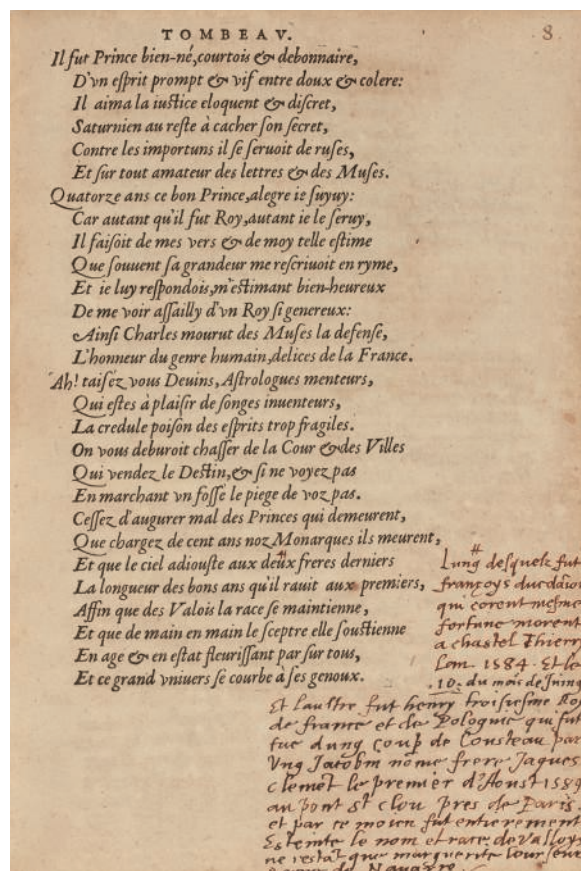 TOMBEAV.
8
Il fut Prince bien-né, courtois & debonnaire,
D'vn eſprit prompt & vif entre doux & colere:
Il aima la iuſtice eloquent & diſcret,
Saturnien au reſte à cacher ſon ſecret,
Contre les importuns il ſe ſeruoit de ruſes,
Et ſur tout amateur des lettres & des Muſes.
Quatorze ans ce bon Prince, alegre ie ſuyuy:
Car autant qu'il fut Roy, autant ie le ſeruy,
Il faiſoit de mes vers & de moy telle eſtime
Que ſouuent ſa grandeur me reſcriuoit en ryme,
Et ie luy reſpondois, m'eſtimant bien-heureux
De me voir aſſailly d'vn Roy ſi genereux:
Ainſi Charles mourut des Muſes la defenſe,
L'honneur du genre humain, delices de la France.
Ah! taiſez vous Deuins, Aſtrologues menteurs,
Qui eſtes à plaiſir de ſonges inuenteurs,
La credule poiſon des eſprits trop fragiles.
On vous deburoit chaſſer de la Cour & des Villes
Qui vendez le Deſtin, & ſi ne voyez pas
En marchant vn foſſé le piege de voz pas.
Ceſſez d'augurer mal des Princes qui demeurent,
Que chargez de cent ans noz Monarques ils meurent,
Et que le ciel adiouſte aux deux freres derniers
La longueur des bons ans qu'il rauit aux premiers,
Affin que des Valois la race ſe maintienne,
Et que de main en main le ſceptre elle ſouſtienne
En age & en eſtat fleuriſſant par ſur tous,
Et ce grand vniuers ſe courbe à ſes genoux.
#
Lung deſquelz fut
françoys duc
qui
fortune
a chaſtel Thierr
Lan 1584. Et le
.10. du mois de Juing
Et laultre fut henry troiſieſme Ro
de france et de Pologne qui fut
tue dung coup de Couſteau par
Vng Jacobin nome frere Jaques
clemet le premier d'Aouſt 1589
au pont St clou pres de Paris
et par ce moien fut entierement
Eſteinte le nom et race de Valloys
ne reſtat que marguerite leur ſeur
de Navarre